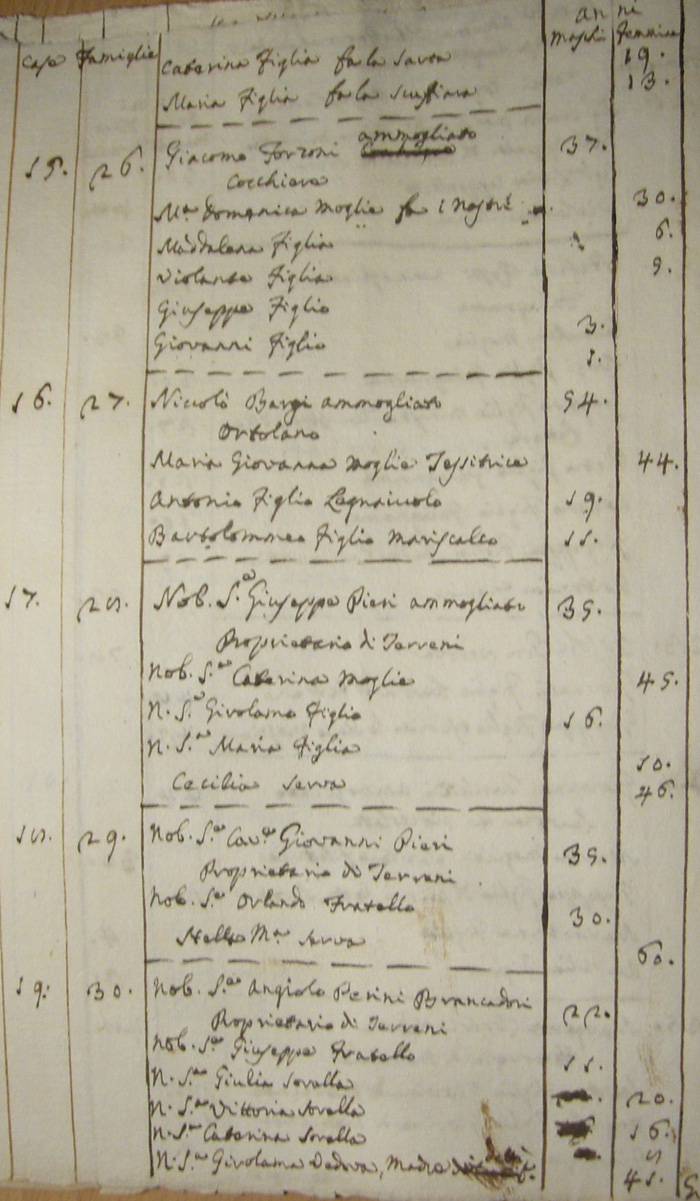 anni
Case Famiglie maschi femmine
Caterina Figlia fa la Sarta 19.
Maria Figlia fa la scuffiara 13.
15. 26. Giacomo Forzoni ammogliato 37.
Cocchiere
M.a Domenica Moglie fa i Nastri 30.
Maddalena Figlia 6.
Violante Figlia 5.
Giuseppe Figlio 3.
Giovanni Figlio 1.
16. 27. Niccolò Bargi ammogliato 54.
Ortolano
Maria Giovanna Moglie Tessitrice 44.
Antonio Figlio Legnaiuolo 19.
Bartolommeo Figlio Mariscalco 11.
17. 28. Nob. S.e Giuseppe Pieri ammogliato 35.
Proprietario di Terreni
Nob. S.ra Caterina Moglie 45.
N. S.e Girolamo Figlio 16.
N. S.ra Maria Figlia 10.
Cecilia Serva 46.
18. 29. Nob. S.e Cav.e Giovanni Pieri 35.
Proprietario di Terreni
Nob. S.e Orlando Fratello 30.
Stella M.a Serva 60.
19. 30. Nob. S.e Angiolo Perini Brancadori 22.
Proprietario di Terreni
Nob. S.e Giuseppe Fratello 11.
N. S.ra Giulia Sorella 20.
N. S.ra Vittoria Sorella 16.
N. S.ra Caterina Sorella 8
N. S.ra Girolama Vedova, Madre 41.